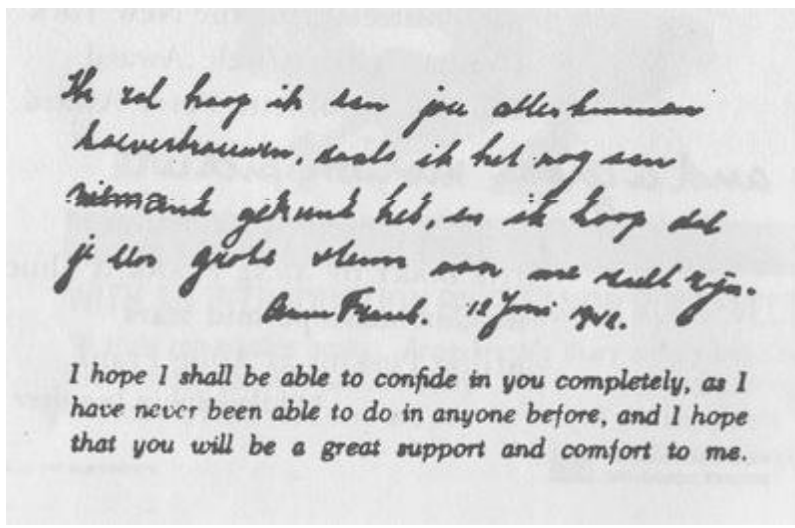 Ik zal hoop ik aan jou alles kunnen
toevertrouwen, zoals ik het nog aan
niemand gekund heb, en ik hoop dat
je een grote steun voor me zult zijn.
Anne Frank. 12 Juni 1942.
I hope I shall be able to confide in you completely, as I
have never been able to do in anyone before, and I hope
that you will be a great support and comfort to me.